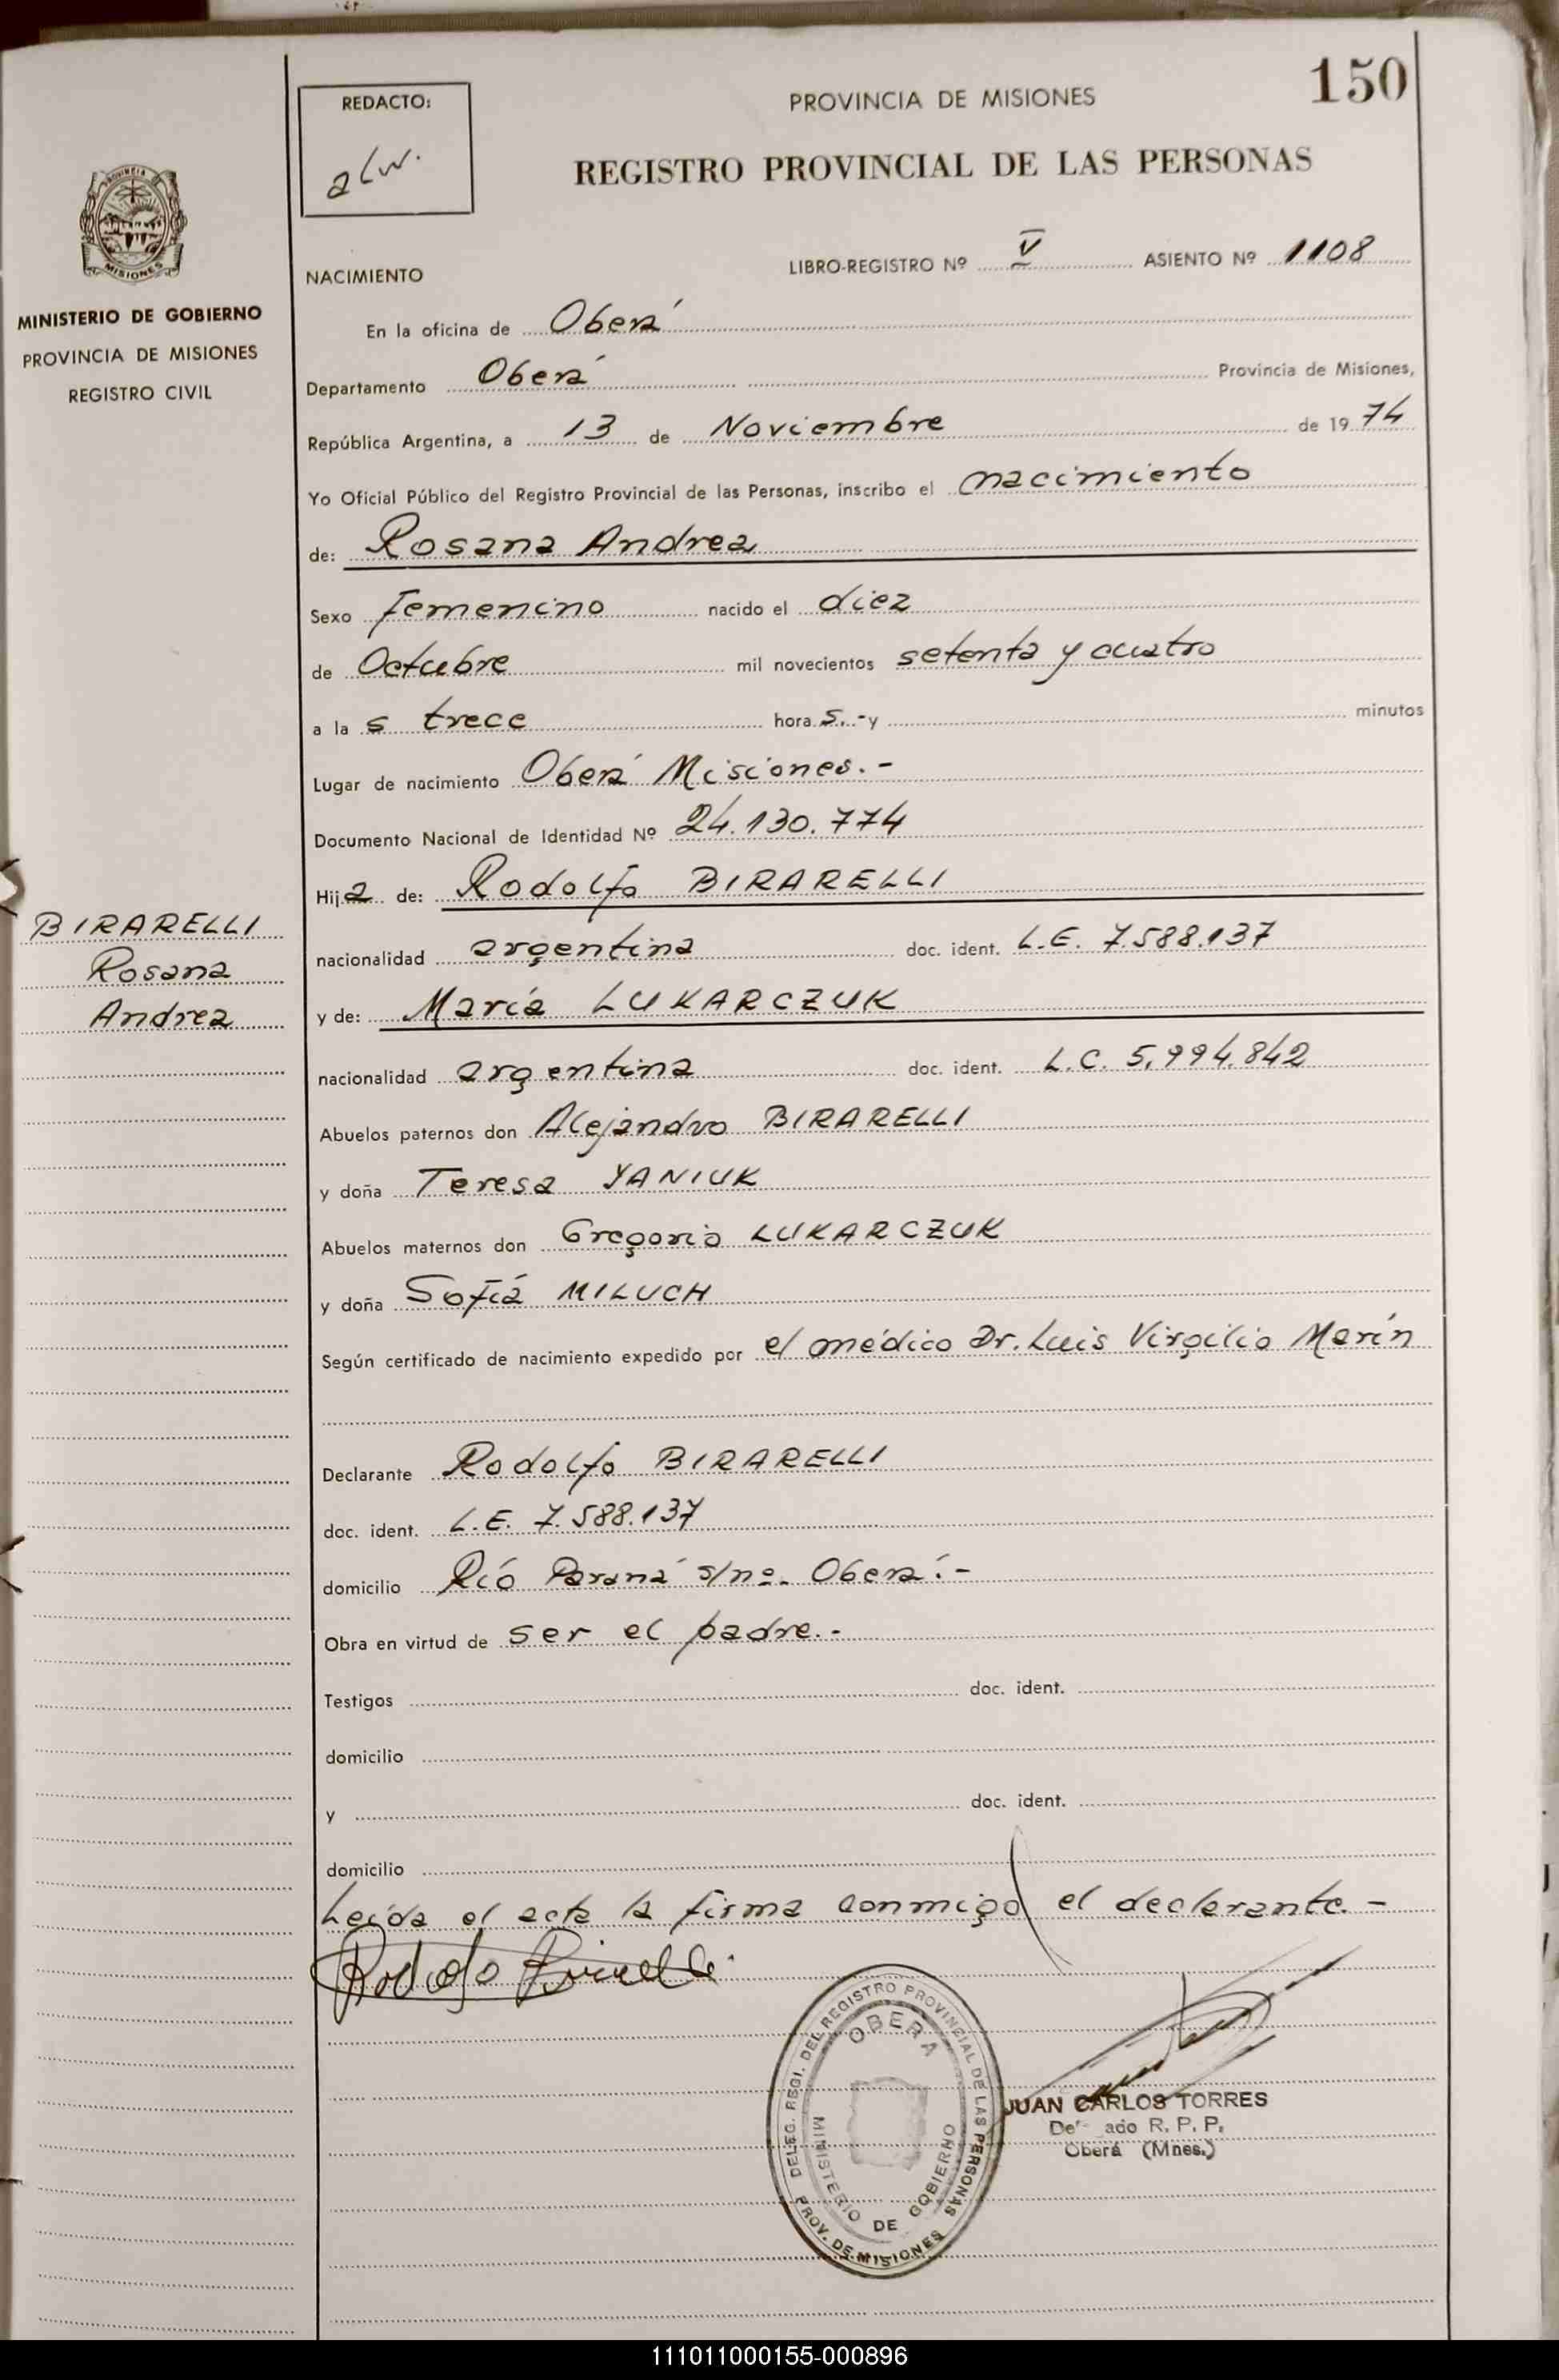 150
REDACTO:
PROVINCIA DE MISIONES
REGISTRO PROVINCIAL DE LAS PERSONAS
PROVINCIA DE
MISIONES
MINISTERIO DE GOBIERNO
PROVINCIA DE MISIONES
REGISTRO CIVIL
NACIMIENTO LIBRO-REGISTRO Nº V ASIENTO Nº 1108
En la oficina de Oberá
Departamento Oberá Provincia de Misiones,
República Argentina, a 13 de Noviembre de 1974
Yo Oficial Público del Registro Provincial de las Personas, inscribo el nacimiento
de: Rosana Andrea
Sexo femenino nacido el diez
de Octubre mil novecientos setenta y cuatro
a la s trece hora s.- y minutos
Lugar de nacimiento Oberá Misiones.-
Documento Nacional de Identidad Nº 24.130.774
Hija de: Rodolfo BIRARELLI
BIRARELLI
Rosana
Andrea
nacionalidad argentina doc. ident. L.E. 7.588.137
y de: María LUKARCZUK
nacionalidad argentina doc. ident. L.C. 5.994.842
Abuelos paternos don Alejandro BIRARELLI
y doña Teresa YANIUK
Abuelos maternos don Gregorio LUKARCZUK
y doña Sofía MILUCH
Según certificado de nacimiento expedido por el médico Dr. Luis Virgilio Marín
Declarante Rodolfo BIRARELLI
doc. ident. L.E. 7.588.137
domicilio Río Paraná s/nº. Oberá.-
Obra en virtud de ser el padre.-
Testigos doc. ident.
domicilio
y doc. ident.
domicilio
Leída el acta la firma conmigo el declarante.-
DELEG. REGI. DEL REGISTRO PROVINCIAL DE LAS PERSONAS
OBERA
MINISTERIO DE GOBIERNO
PROV. DE MISIONES
JUAN CARLOS TORRES
R. P. P.
Oberá (Mnes.)
111011000155-000896